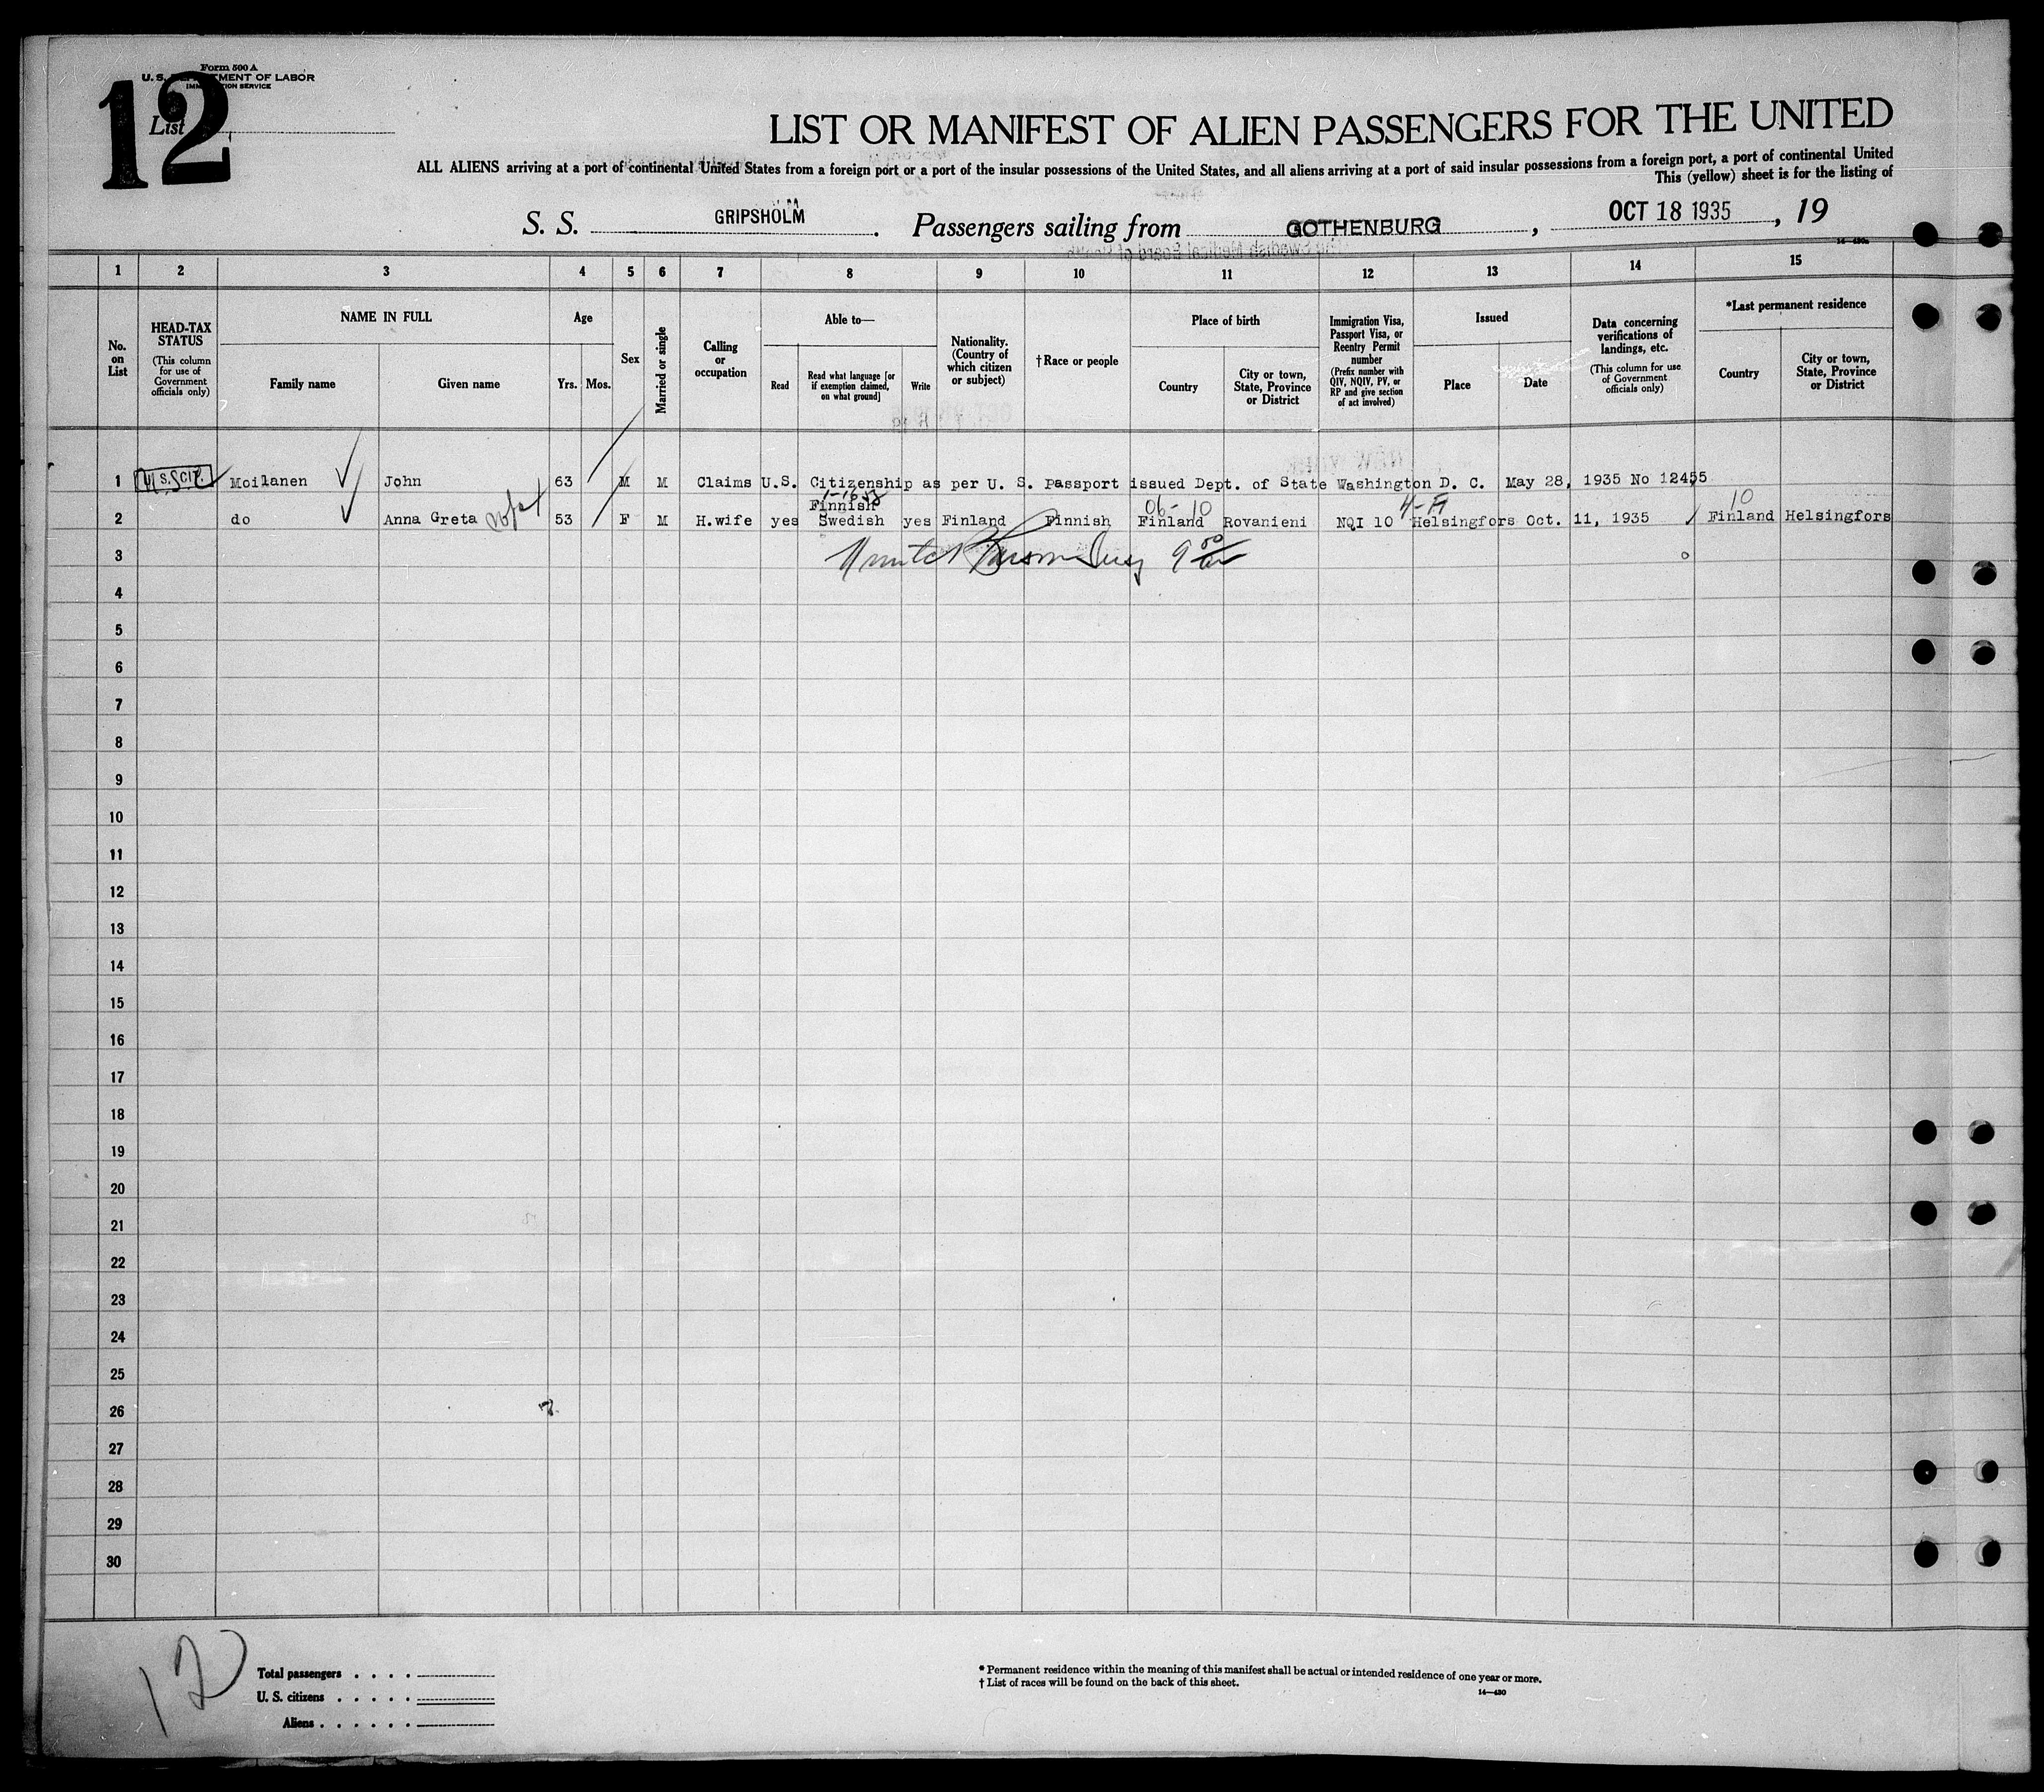 Form 500 A
U. S. DEPARTMENT OF LABOR
IMMIGRATION SERVICE
12
List
LIST OR MANIFEST OF ALIEN PASSENGERS FOR THE UNITED
ALL ALIENS arriving at a port of continental United States from a foreign port or a port of the insular possessions of the United States, and all aliens arriving at a port of said insular possessions from a foreign port, a port of continental United
This (yellow) sheet is for the listing of
S. S. GRIPSHOLM. Passengers sailing from GOTHENBURG, OCT 18 1935, 19
1 2 3 4 5 6 7 8 9 10 11 12 13 14 15
No. on List
HEAD-TAX STATUS
(This column for use of Government officials only)
NAME IN FULL
Family name
Given name
Age
Yrs. Mos.
Sex
Married or single
Calling or occupation
Able to—
Read
Read what language [or if exemption claimed, on what ground]
Write
Nationality. (Country of which citizen or subject)
†Race or people
Place of birth
Country
City or town, State, Province or District
Immigration Visa, Passport Visa, or Reentry Permit number
(Prefix number with QIV, NQIV, PV, or RP and give section of act involved)
Issued
Place
Date
Data concerning verifications of landings, etc.
(This column for use of Government officials only)
*Last permanent residence
Country
City or town, State, Province or District
1 U.S. CIT. Moilanen John 63 M M Claims U.S. Citizenship as per U. S. Passport issued Dept. of State Washington D. C. May 28, 1935 No 12455
Finnish 06-10 10
2 do Anna Greta 53 F M H.wife yes Swedish yes Finland Finnish Finland Rovanieni NQI 10 Helsingfors Oct. 11, 1935 Finland Helsingfors
3
4
5
6
7
8
9
10
11
12
13
14
15
16
17
18
19
20
21
22
23
24
25
26
27
28
29
30
12
Total passengers . . . .
U. S. citizens . . . . .
Aliens . . . . . .
* Permanent residence within the meaning of this manifest shall be actual or intended residence of one year or more.
† List of races will be found on the back of this sheet.
14—430